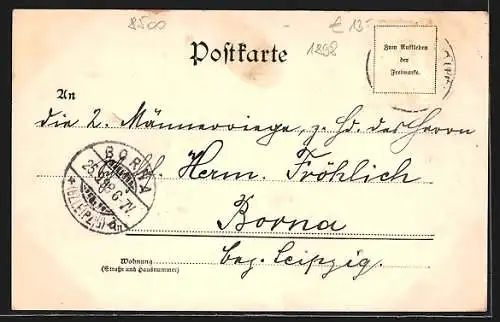 8500
€ 13.-
Postkarte
1898
Zum Aufkleben
der
Freimarke.
An
die 2. Männerriege, z. Hd. des Herrn
Herm. Fröhlich
BORNA
25.6.98 6-7V.
*(BZ. LEIPZIG) a
Borna
bez. Leipzig.
Wohnung
(Straße und Hausnummer)